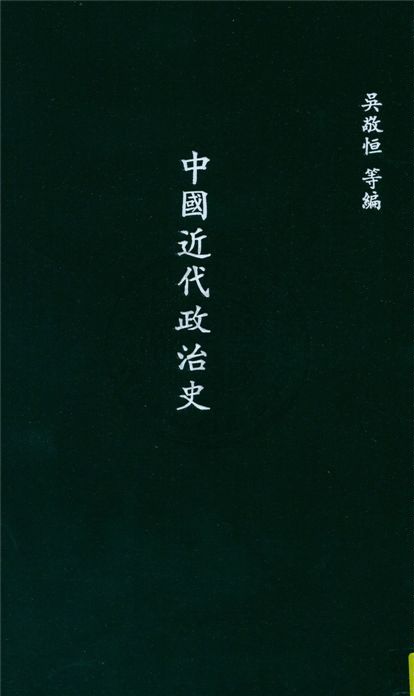 吳敬恒 等編
中國近代政治史